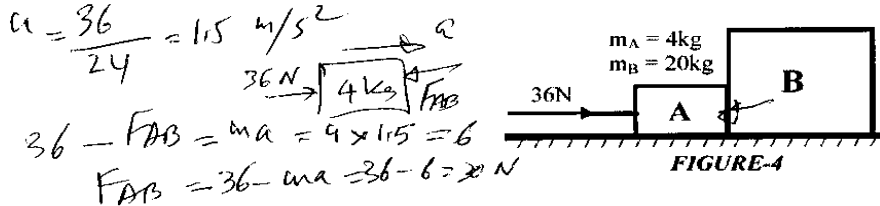 a = 36/24 = 1.5 m/s²
a
36 N 4 kg F_AB
36 − F_AB = ma = 4 × 1.5 = 6
F_AB = 36 − ma = 36 − 6 = 30 N
m_A = 4kg
m_B = 20kg
36N A B
FIGURE-4